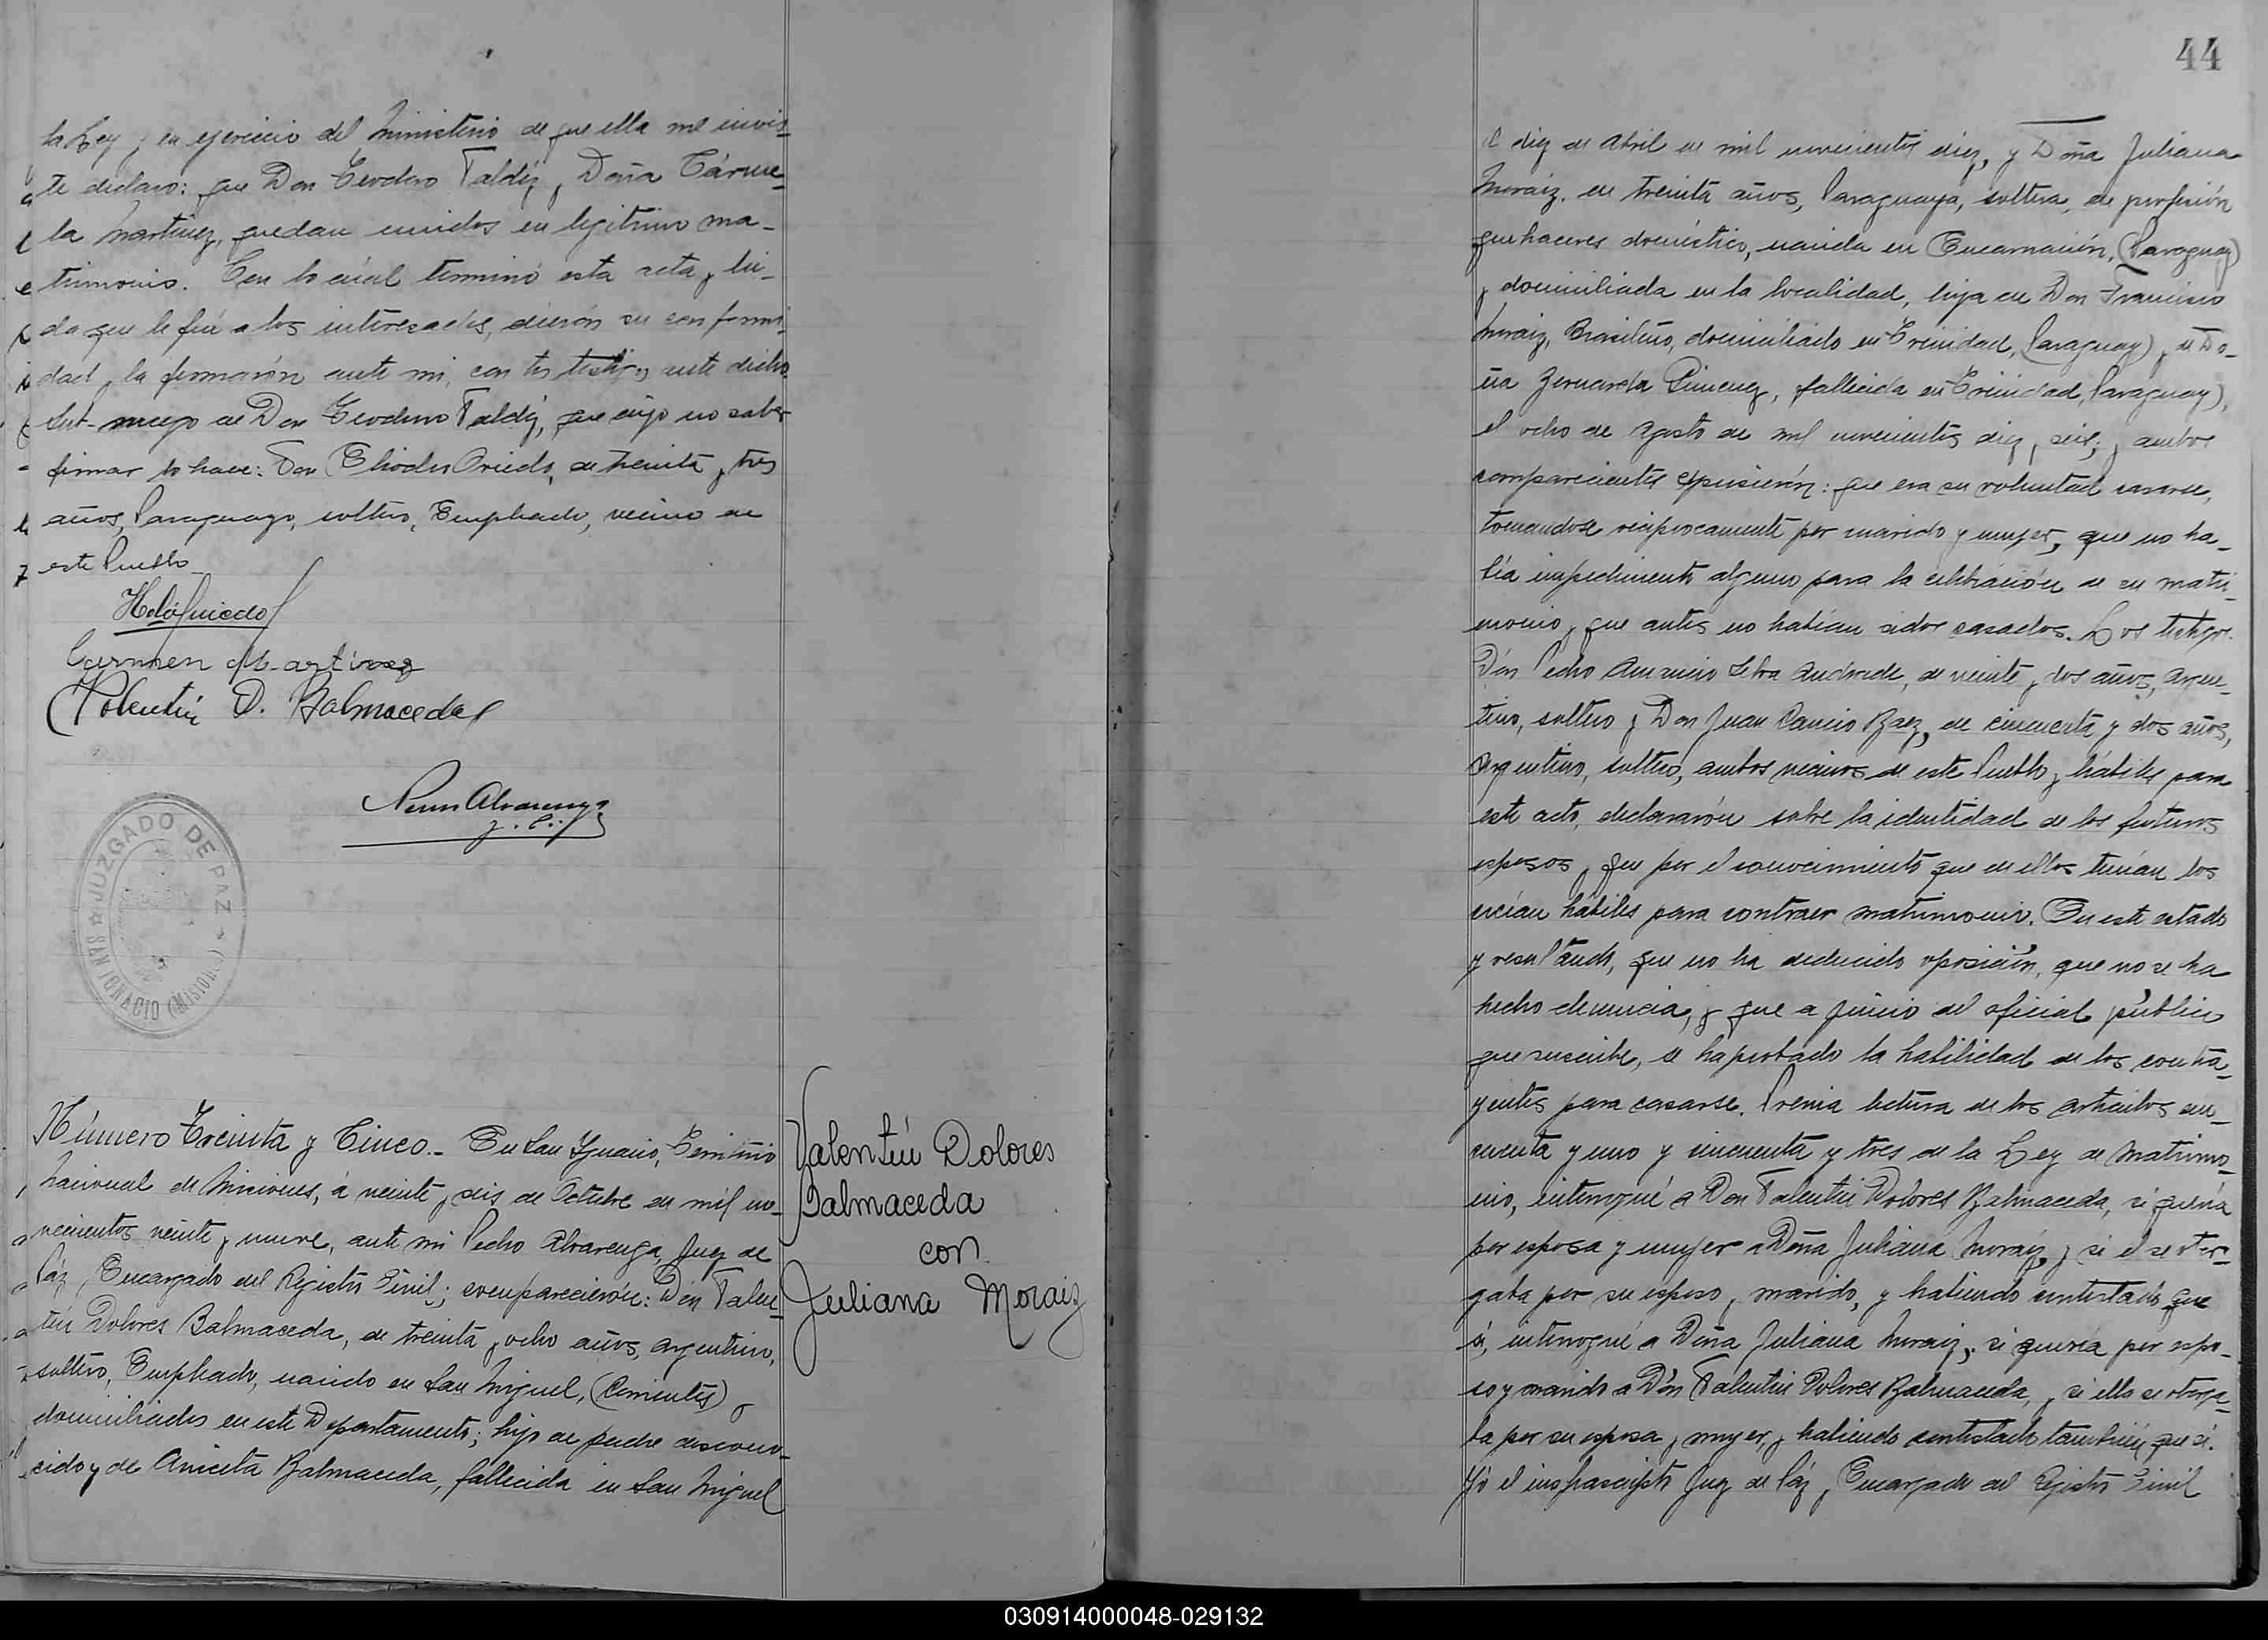 la Ley y en ejercicio del Ministerio de que ella me invis-
te declaro: que Don Teodoro Valdéz y Doña Cárme-
la Martinez, quedan unidos en legitimo ma-
trimonio. Con lo cuál terminó esta acta y lei-
da que le fué a los interesados, dieron su conformi-
dad y la firmarón ante mi, con los testigos ante dichos
ruego de Don Teodoro Valdéz, que dijo no saber
firmar lo hace: Don Oviedo, de treinta y tres
años, Paraguayo, soltero, Empleado, vecino de
este Pueblo
Carmen Martinez
Valentín D. Balmaceda
Alvarenga
J. P.
JUZGADO DE PAZ
SAN IGNACIO (MISIONES)
Número Treinta y Cinco.- En San Ygnacio, Territorio
Nacional de Misiones, á veinte y seis de Octubre de mil no-
vecientos veinte y nueve, ante mi Pedro Alvarenga, Juez de
Páz y Encargado del Registro Civil; comparecierón: Dón Valen-
tín Dolores Balmaceda, de treinta y ocho años, argentino,
soltero, Empleado, nacido en San Miguel, (Corrientes) y
domiciliado en este Departamento; hijo de padre descono-
cido y de Aniceta Balmaceda, fallecida en San Miguel
Valentín Dolores
Balmaceda
con
Juliana Moraiz
44
el diez de Abril de mil novecientos diez, y Doña Juliana
Moraiz, de treinta años, Paraguaya, soltera, de profesión
quehaceres domésticos, nacida en Encarnación, (Paraguay)
y domiciliada en la localidad, hija de Don Francisco
Moraiz, Brasileño, domiciliado en Trinidad, (Paraguay) y de Do-
ña Gimenez, fallecida en Trinidad, Paraguay),
el ocho de Agosto de mil novecientos diez y seis; y ambos
comparecientes expusierón: que era su voluntad casarse,
tomandose reciprocamente por marido y mujer, que no ha-
bía impedimento alguno para la celebración de su matri-
monio y que antes no habían sidos casados. Los testigos.
Dón Pedro Andrade, de veinte y dos años, Argen-
tino, soltero y Don Juan Baez, de cincuenta y dos años,
Argentino, soltero, ambos vecinos de este Pueblo y hábiles para
este acto, declararón sobre la identidad de los futuros
esposos y que por el conocimiento que de ellos tenían los
creían hábiles para contraer matrimonio. En este estado
y resultando, que no ha deducido oposición, que no se ha
hecho denuncia, y que a juicio del oficial público
que suscribe, se ha probado la habilidad de los contra-
yentes para casarse. Previa lectura de los artículos cin-
cuenta y uno y cincuenta y tres de la Ley de Matrimo-
nio, interrogué a Don Valentín Dolores Balmaceda, si quería
por esposa y mujer a Doña Juliana Moraiz, y si él se otor-
gaba por su esposo y marido, y habiendo contestado que
si, interrogué a Doña Juliana Moraiz, si quería por espo-
so y marido a Dón Valentín Dolores Balmaceda, y si ella se otorga-
ba por su esposa y mujer, y habiendo contestado también que si.
Yo el infrascripto Juez de Páz y Encargado del Registro Civil
030914000048-029132